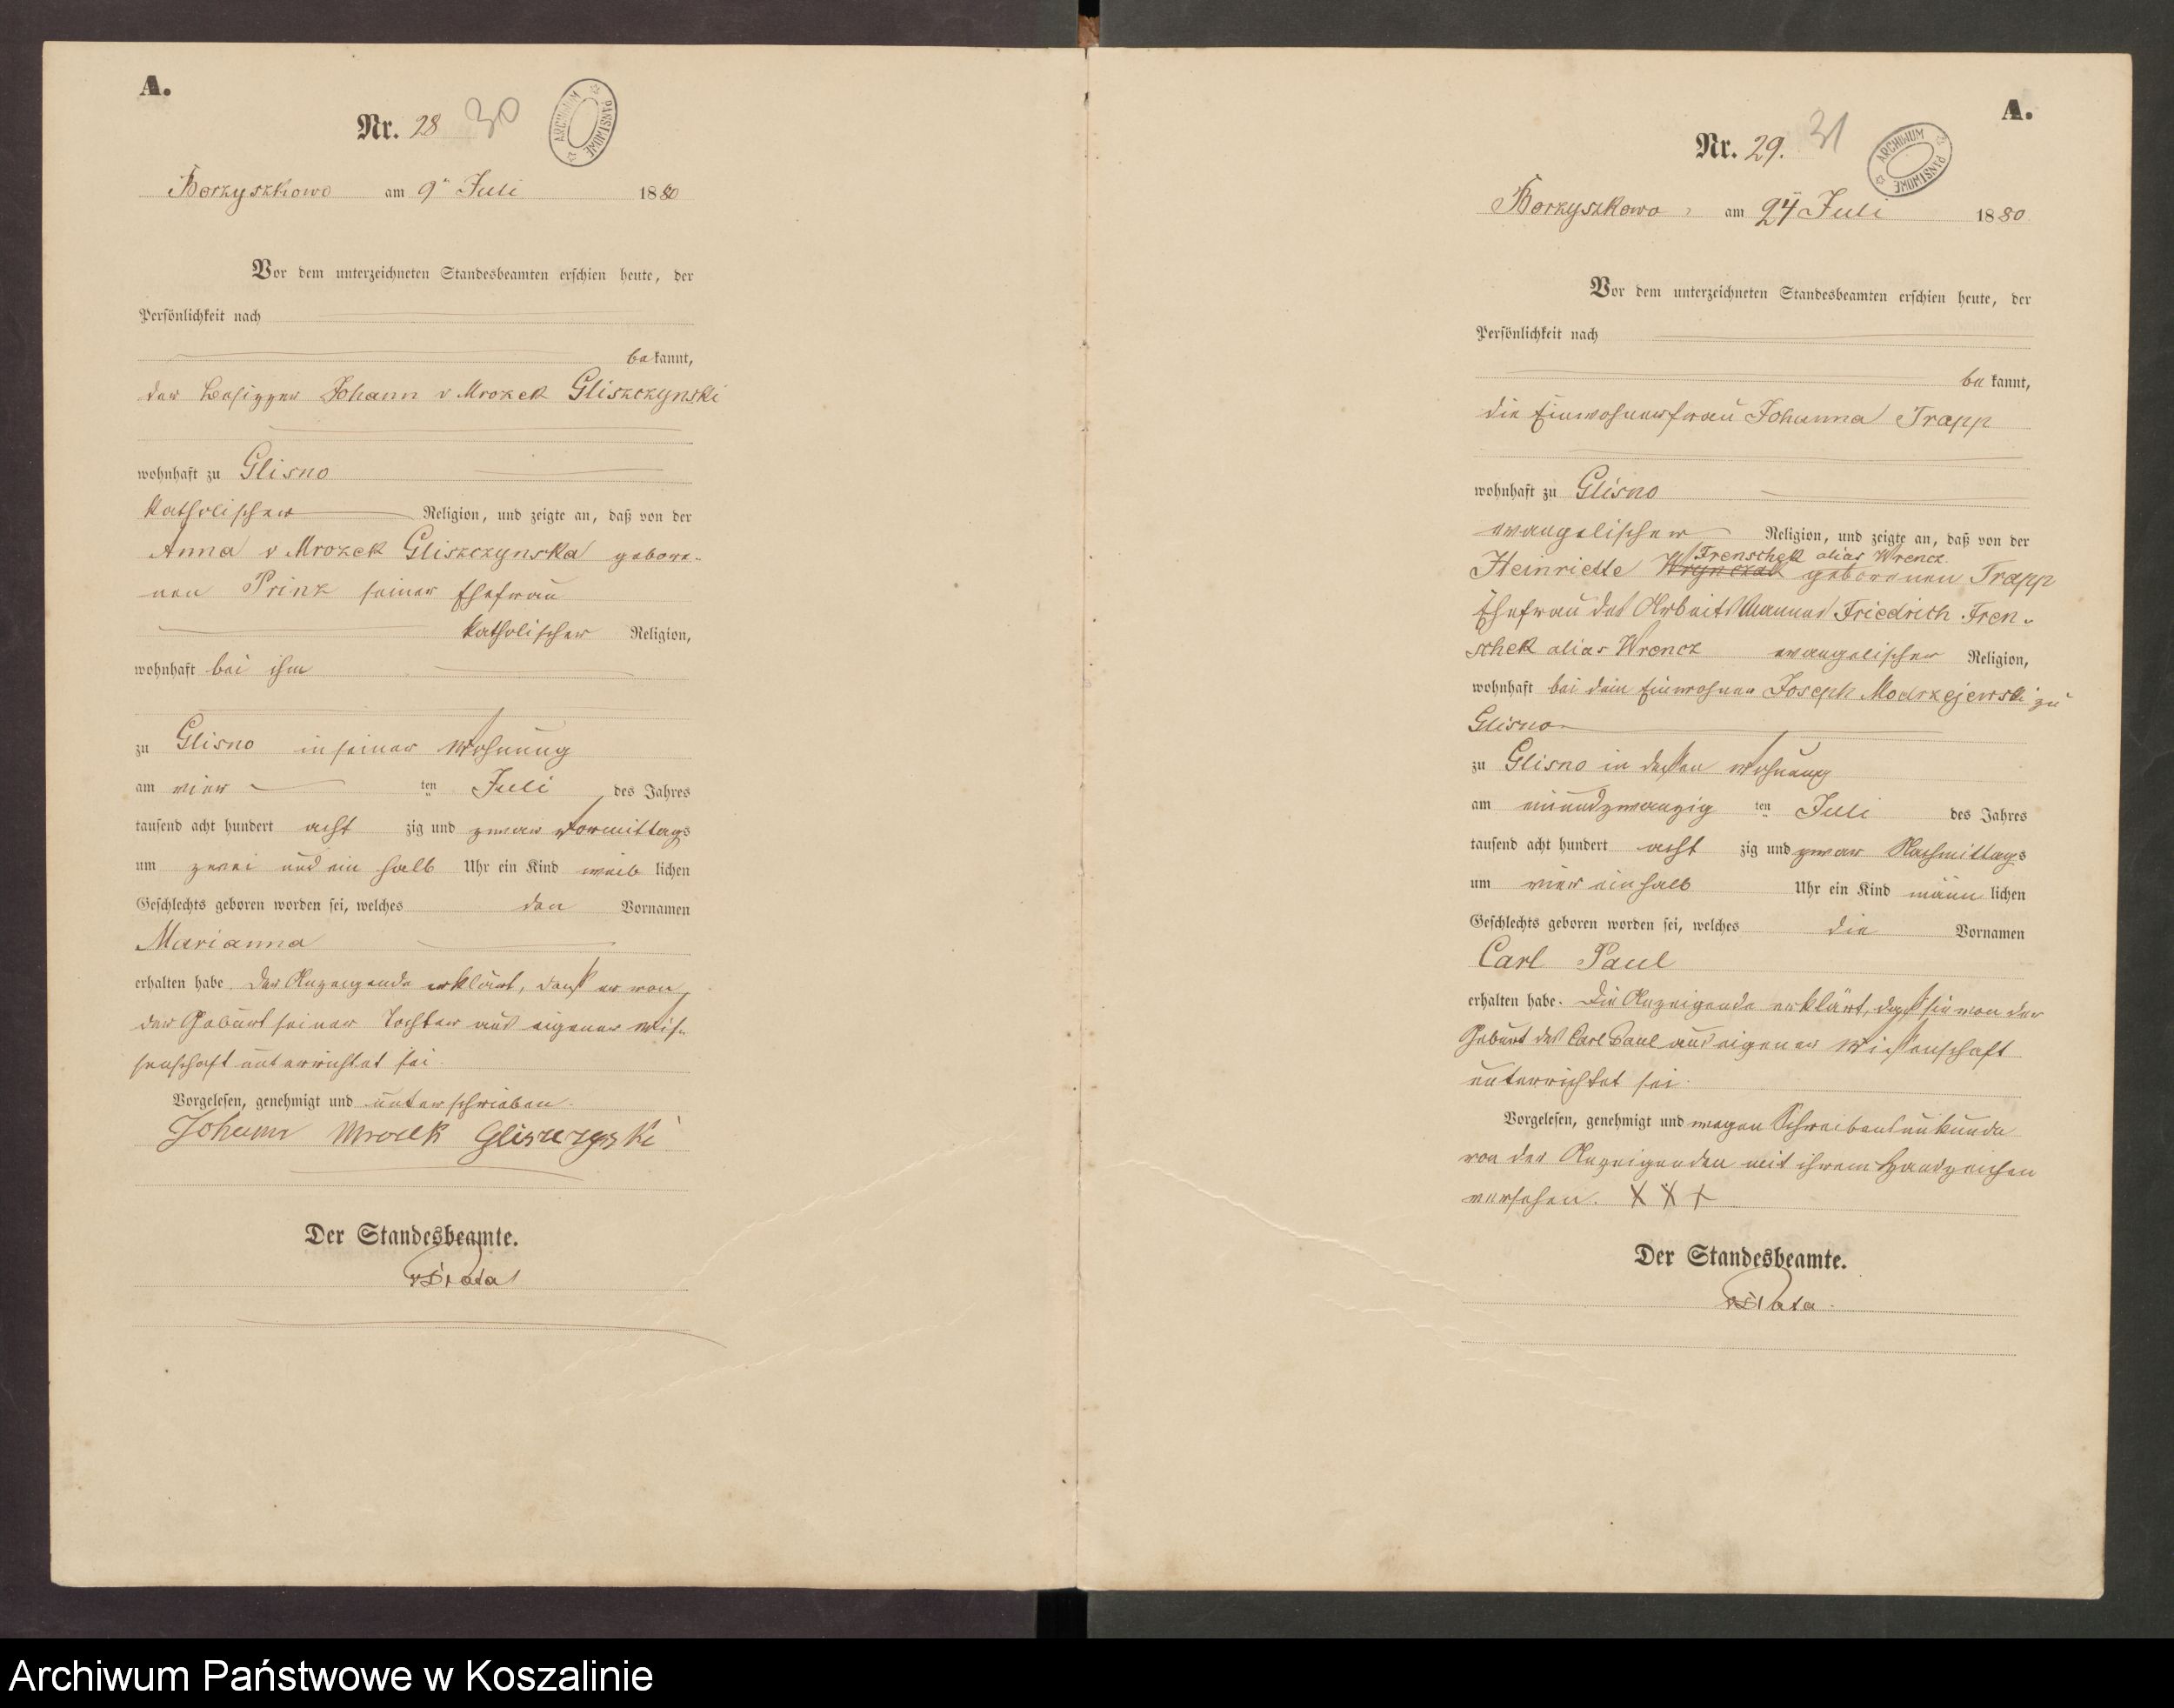 A.
Nr. 28 30
ARCHIWUM PAŃSTWOWE
Borzyszkowo am 9 Juli 1880
Vor dem unterzeichneten Standesbeamten erschien heute, der
Persönlichkeit nach
bekannt,
der Besitzer Johann v Mrozek Gliszczynski
wohnhaft zu Glisno
katholischer Religion, und zeigte an, daß von der
Anna v Mrozek Gliszczynska gebore-
nen Prinz seiner Ehefrau
katholischer Religion,
wohnhaft bei ihm
zu Glisno in seiner Wohnung
am vier ten Juli des Jahres
tausend acht hundert acht zig und zwar Vormittags
um zwei und ein halb Uhr ein Kind weib lichen
Geschlechts geboren worden sei, welches den Vornamen
Marianna
erhalten habe. Der Anzeigende erklärt, dass er von
der Geburt seiner Tochter aus eigener Wis-
senschaft unterrichtet sei.
Vorgelesen, genehmigt und unterschrieben.
Johann Mrozek
Der Standesbeamte.
A.
Nr. 29. 31
ARCHIWUM PAŃSTWOWE
Borzyszkowo, am 24 Juli 1880
Vor dem unterzeichneten Standesbeamten erschien heute, der
Persönlichkeit nach
bekannt,
die Einwohnerfrau Johanna Trapp
wohnhaft zu Glisno
evangelischer Religion, und zeigte an, daß von der
Frenschek alias Wrencz
Heinriette geborenen Trapp
Ehefrau des Arbeitsmannes Friedrich Fren-
schek alias Wrencz evangelischer Religion,
wohnhaft bei dem Einwohner Joseph Modrzejewski zu
Glisno
zu Glisno in dessen Wohnung
am einundzwanzig ten Juli des Jahres
tausend acht hundert acht zig und zwar Nachmittags
um vier ein halb Uhr ein Kind männ lichen
Geschlechts geboren worden sei, welches die Vornamen
Carl Paul
erhalten habe. Die Anzeigende erklärt, dass sie von der
Geburt des Carl Paul aus eigener Wissenschaft
unterrichtet sei.
Vorgelesen, genehmigt und wegen Schreibensunkunde
von der Anzeigenden mit ihrem Handzeichen
versehen. X X +
Der Standesbeamte.
Archiwum Państwowe w Koszalinie